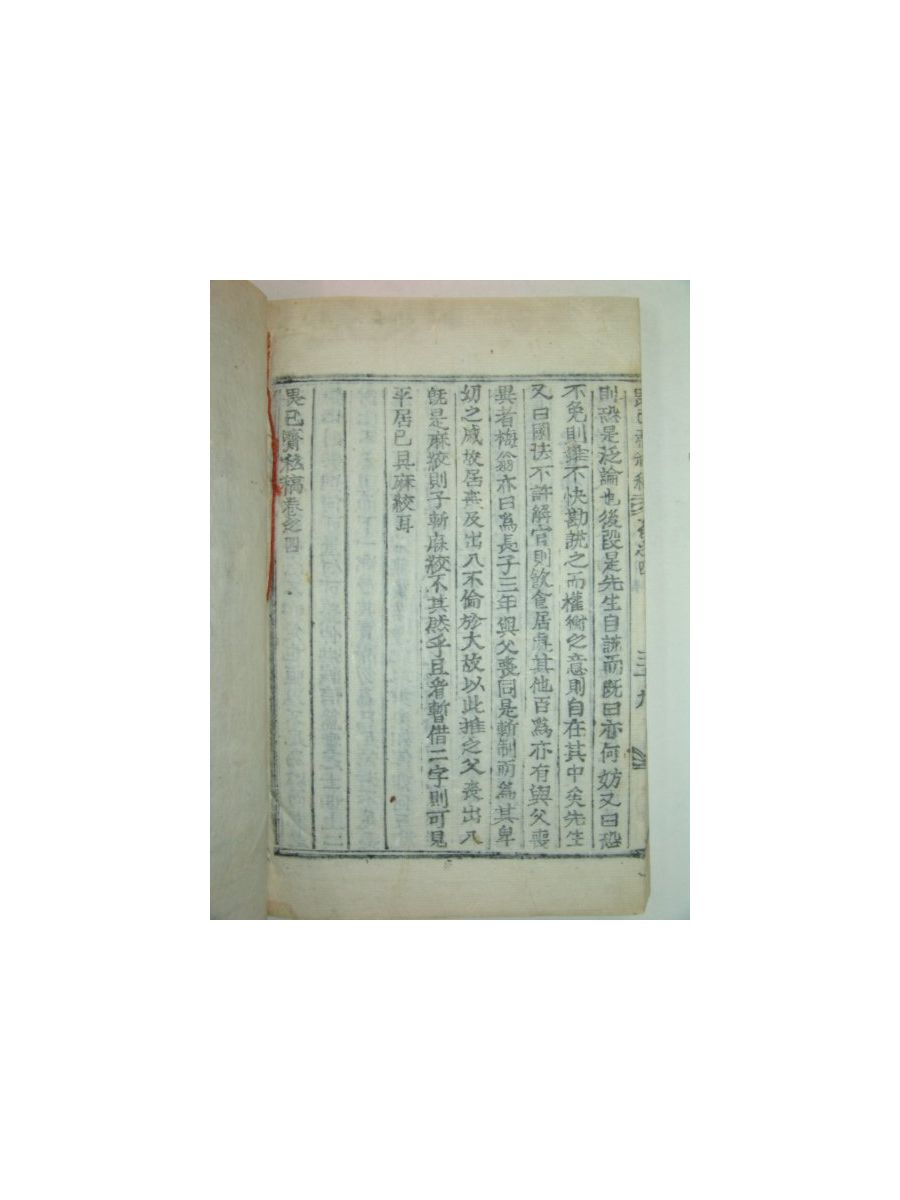 則恐是泛論也後段是先生自說而旣曰亦何妨又曰恐
不免則雖不快勘說之而權衡之意則自在其中矣先生
又曰國法不許解官則飮食居處其他百爲亦有與父喪
異者梅翁亦曰爲長子三年與父喪同是斬制而爲其卑
幼之戚故居喪及出入不倫於大故以此推之父喪出入
旣是麻絞則子斬麻絞不其然乎且看暫借二字則可見
平居已具麻絞耳
畏己齋私稿卷之四